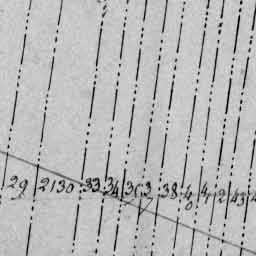 29 2130 33 34 36 3 38 40 41 2 43